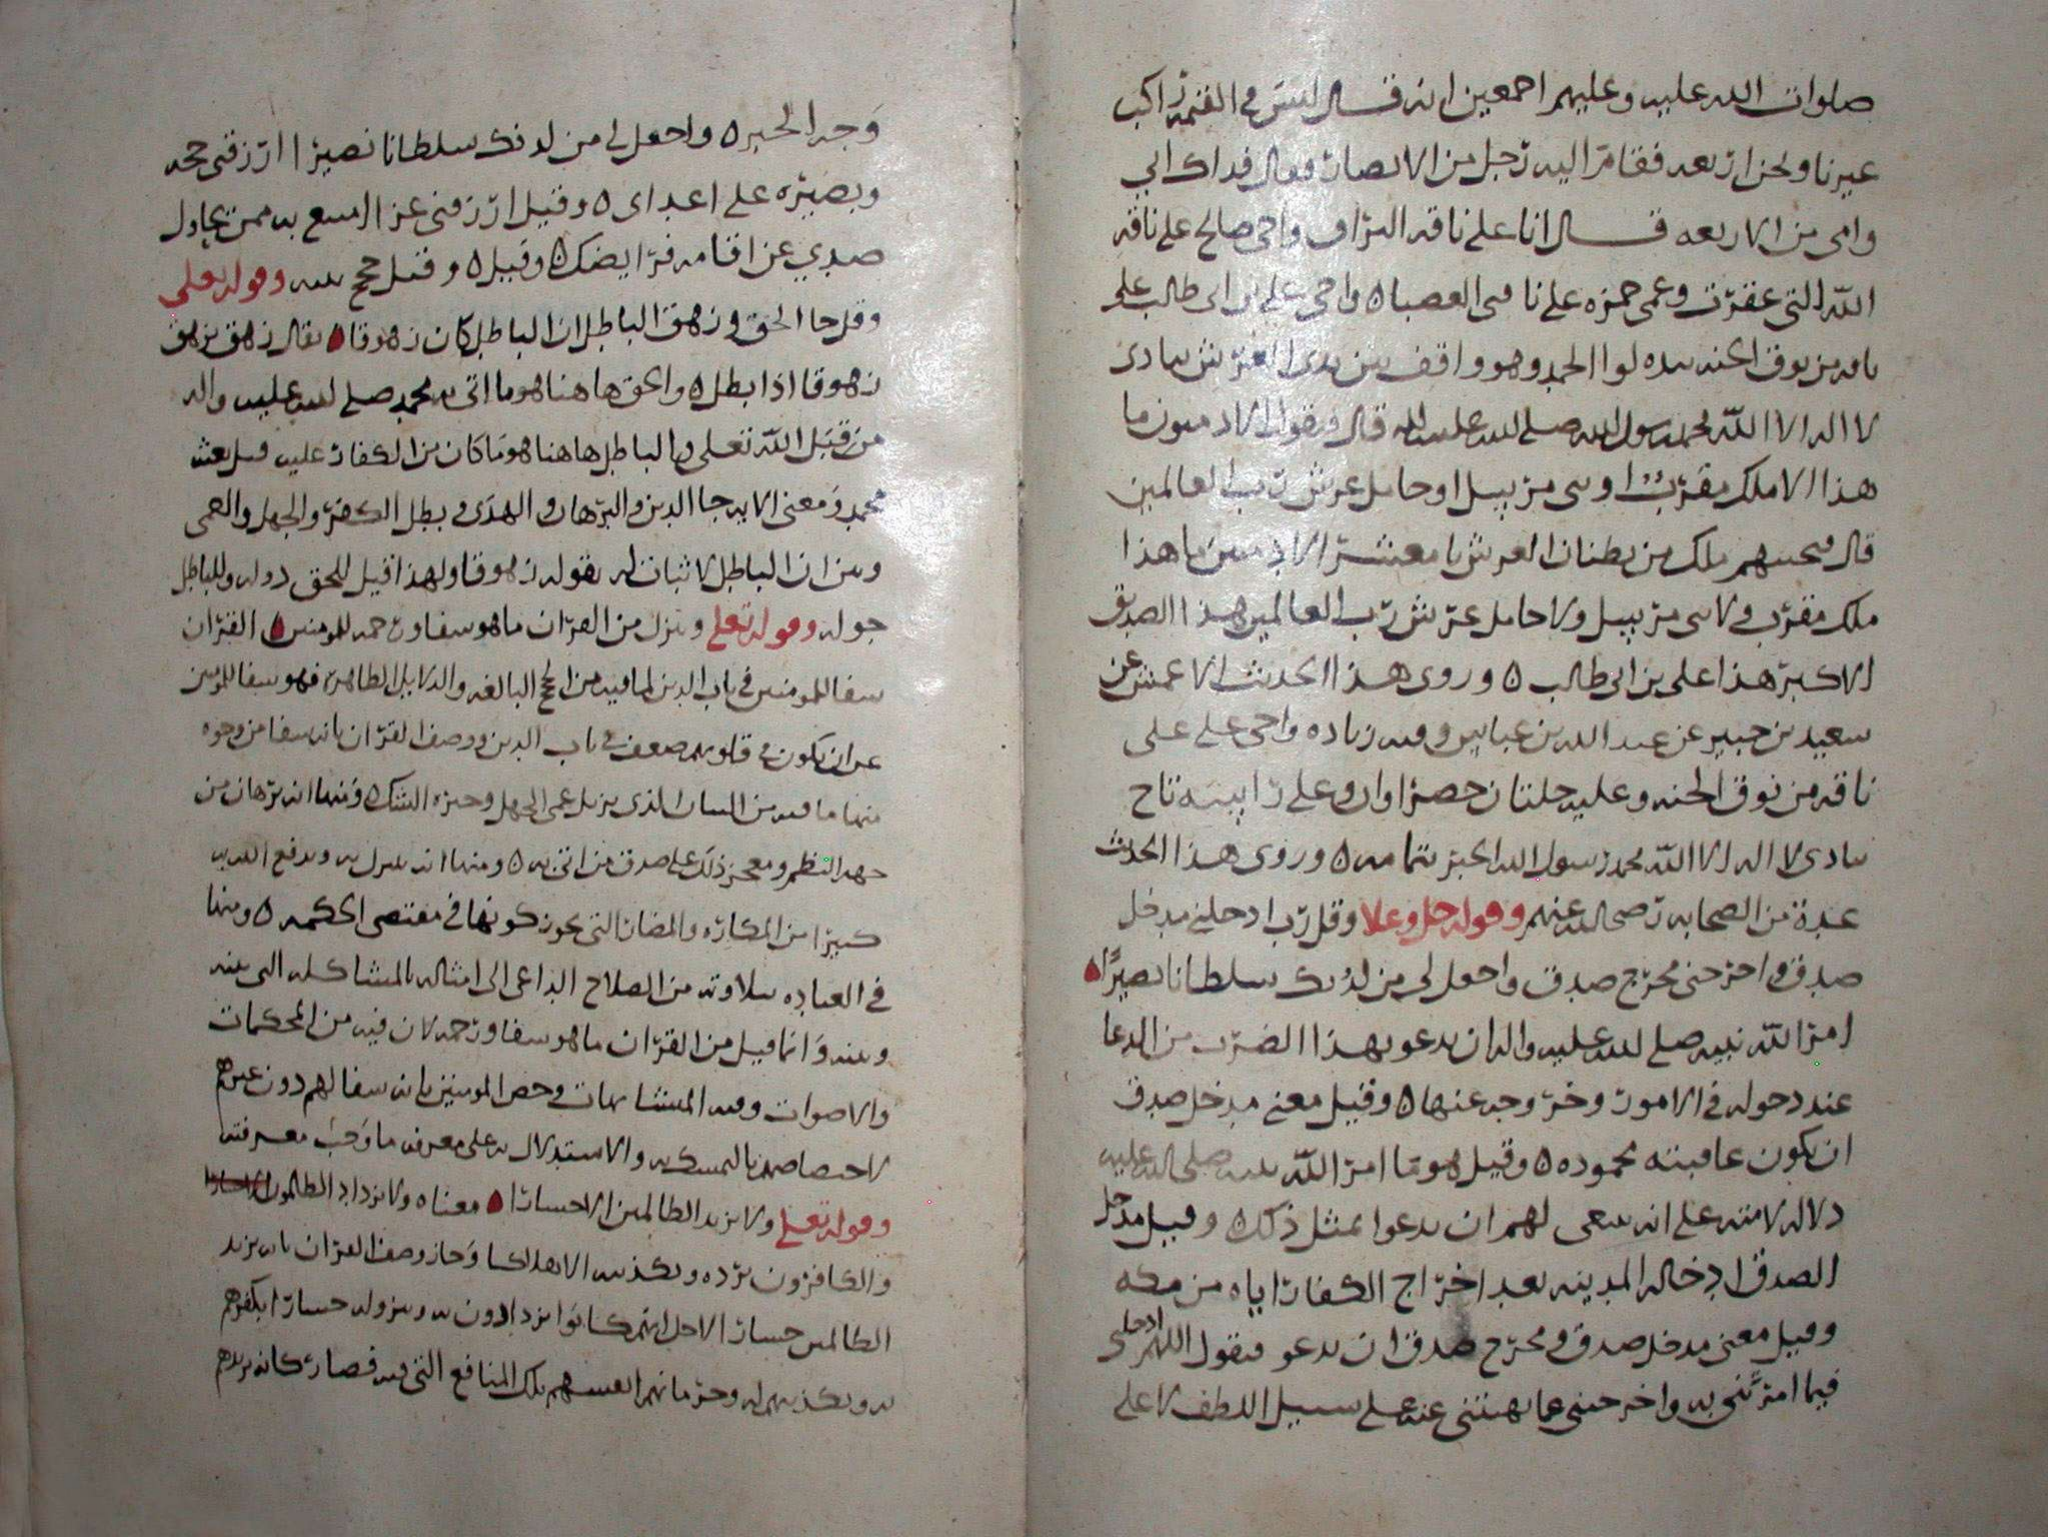 صلوات الله عليه وعليهم اجمعين انه قال ليس في القيمة راكب
غيرنا ونحن اربعه فقام اليه رجل من الانصار فقال فداك ابي
وامي من الاربعه قال انا على ناقه البراق واخي صالح على ناقه
الله التي عقرت وعمي حمزه على ناقتي العضبا ٥ واخي علي بن ابي طالب على
ناقه من نوق الجنه بيده لوا الحمد وهو واقف بين يدي العرش ينادي
لا اله الا الله محمد رسول الله صلى الله عليه واله قال فيقول الادميون ما
هذا الا ملك مقرب او نبي مرسل او حامل عرش رب العالمين
قال فيجيبهم ملك من بطنان العرش يا معشر الادميين ما هذا
ملك مقرب ولا نبي مرسل ولا حامل عرش رب العالمين هذا الصديق
الاكبر هذا علي بن ابي طالب ٥ وروى هذا الحديث الاعمش عن
سعيد بن جبير عن عبد الله بن عباس وفيه زياده واخي علي على
ناقه من نوق الجنه وعليه حلتان خضراوان وعلى راسه تاج
ينادي لا اله الا الله محمد رسول الله الخبر بتمامه ٥ وروى هذا الحديث
عدة من الصحابه رضي الله عنهم وقوله جل وعلا وقل رب ادخلني مدخل
صدق واخرجني مخرج صدق واجعل لي من لدنك سلطانا نصيرًا ٥
امر الله نبيه صلى الله عليه واله ان يدعو بهذا الضرب من الدعا
عند دخوله في الامور وخروجه عنها ٥ وقيل معنى مدخل صدق
ان يكون عاقبته محموده ٥ وقيل هو ما امر الله نبيه صلى الله عليه
دلاله لامته على انه ينبغي لهم ان يدعوا بمثل ذلك وقيل مدخل
الصدق ادخاله المدينه بعد اخراج الكفار اياه من مكه
وقيل معنى مدخل صدق ومخرج صدق ان يدعو فيقول اللهم ادخلني
فيما امرتني به واخرجني عما نهيتني عنه على سبيل اللطف لا على
وجه الخبر ٥ واجعل لي من لدنك سلطانا نصيرا ارزقني حجه
وبصيره على اعداي ٥ وقيل ارزقني عزا امتنع به ممن يحاول
صدي عن اقامه فرايضك ٥ وقيل ٥ وقيل حجج بينه وقوله تعلى
وقل جا الحق وزهق الباطل ان الباطل كان زهوقا ٥ يقال زهق يزهق
زهوقا اذا بطل ٥ والحق هاهنا هو ما اتى به محمد صلى الله عليه واله
من قبل الله تعلى والباطل هاهنا هو ما كان من الكفار عليه قبل بعثه
محمد ومعنى الايه جا الدين والبرهان والهدى وبطل الكفر والجهل والعمى
وبين ان الباطل لا ثبات له بقوله زهوقا ولهذا قيل للحق دوله وللباطل
جوله وقوله تعلى وننزل من القران ما هو شفا ورحمه للمومنين ٥ القران
شفا للمومنين في باب الدين لما فيه من الحجج البالغه والدلايل الظاهره فهو شفا للمومنين
عن ان يكون في قلوبهم ضعف في باب الدين ووصف القران بانه شفا من وجوه
منها ما فيه من البيان الذي يزيل عمى الجهل وحيره الشك ٥ ومنها انه برهان من
جهه النظم ومعجز ذلك على صدق من اتى به ٥ ومنها انه يتبرك به ويدفع الله به
كثيرا من المكاره والمضار التي يجوز كونها في مقتضى الحكمه ٥ ومنها
في العباده بتلاوته من الصلاح الداعي الى امثاله بالمشاكله التي بينه
وبينه وانما قيل من القران ما هو شفا ورحمه لان فيه من المحكمات
والاصوات وفيه المتشابهات وخص المومنين بانه شفا لهم دون غيرهم
لاختصاصهم بالتمسك به والاستدلال به على معرفه ما وجب معرفته
وقوله تعلى ولا يزيد الظالمين الا خسارا ٥ معناه ولا يزداد الظالمون
والكافرون برده وتكذيبه الا هلاكا وجاز وصف القران بانه يزيد
الظالمين خسارا لاجل انهم كانوا يزدادون به وبنزوله خسارا بكفرهم
به وتكذيبهم له وحرمانهم انفسهم تلك المنافع التي فيه فصار كانه يزيدهم